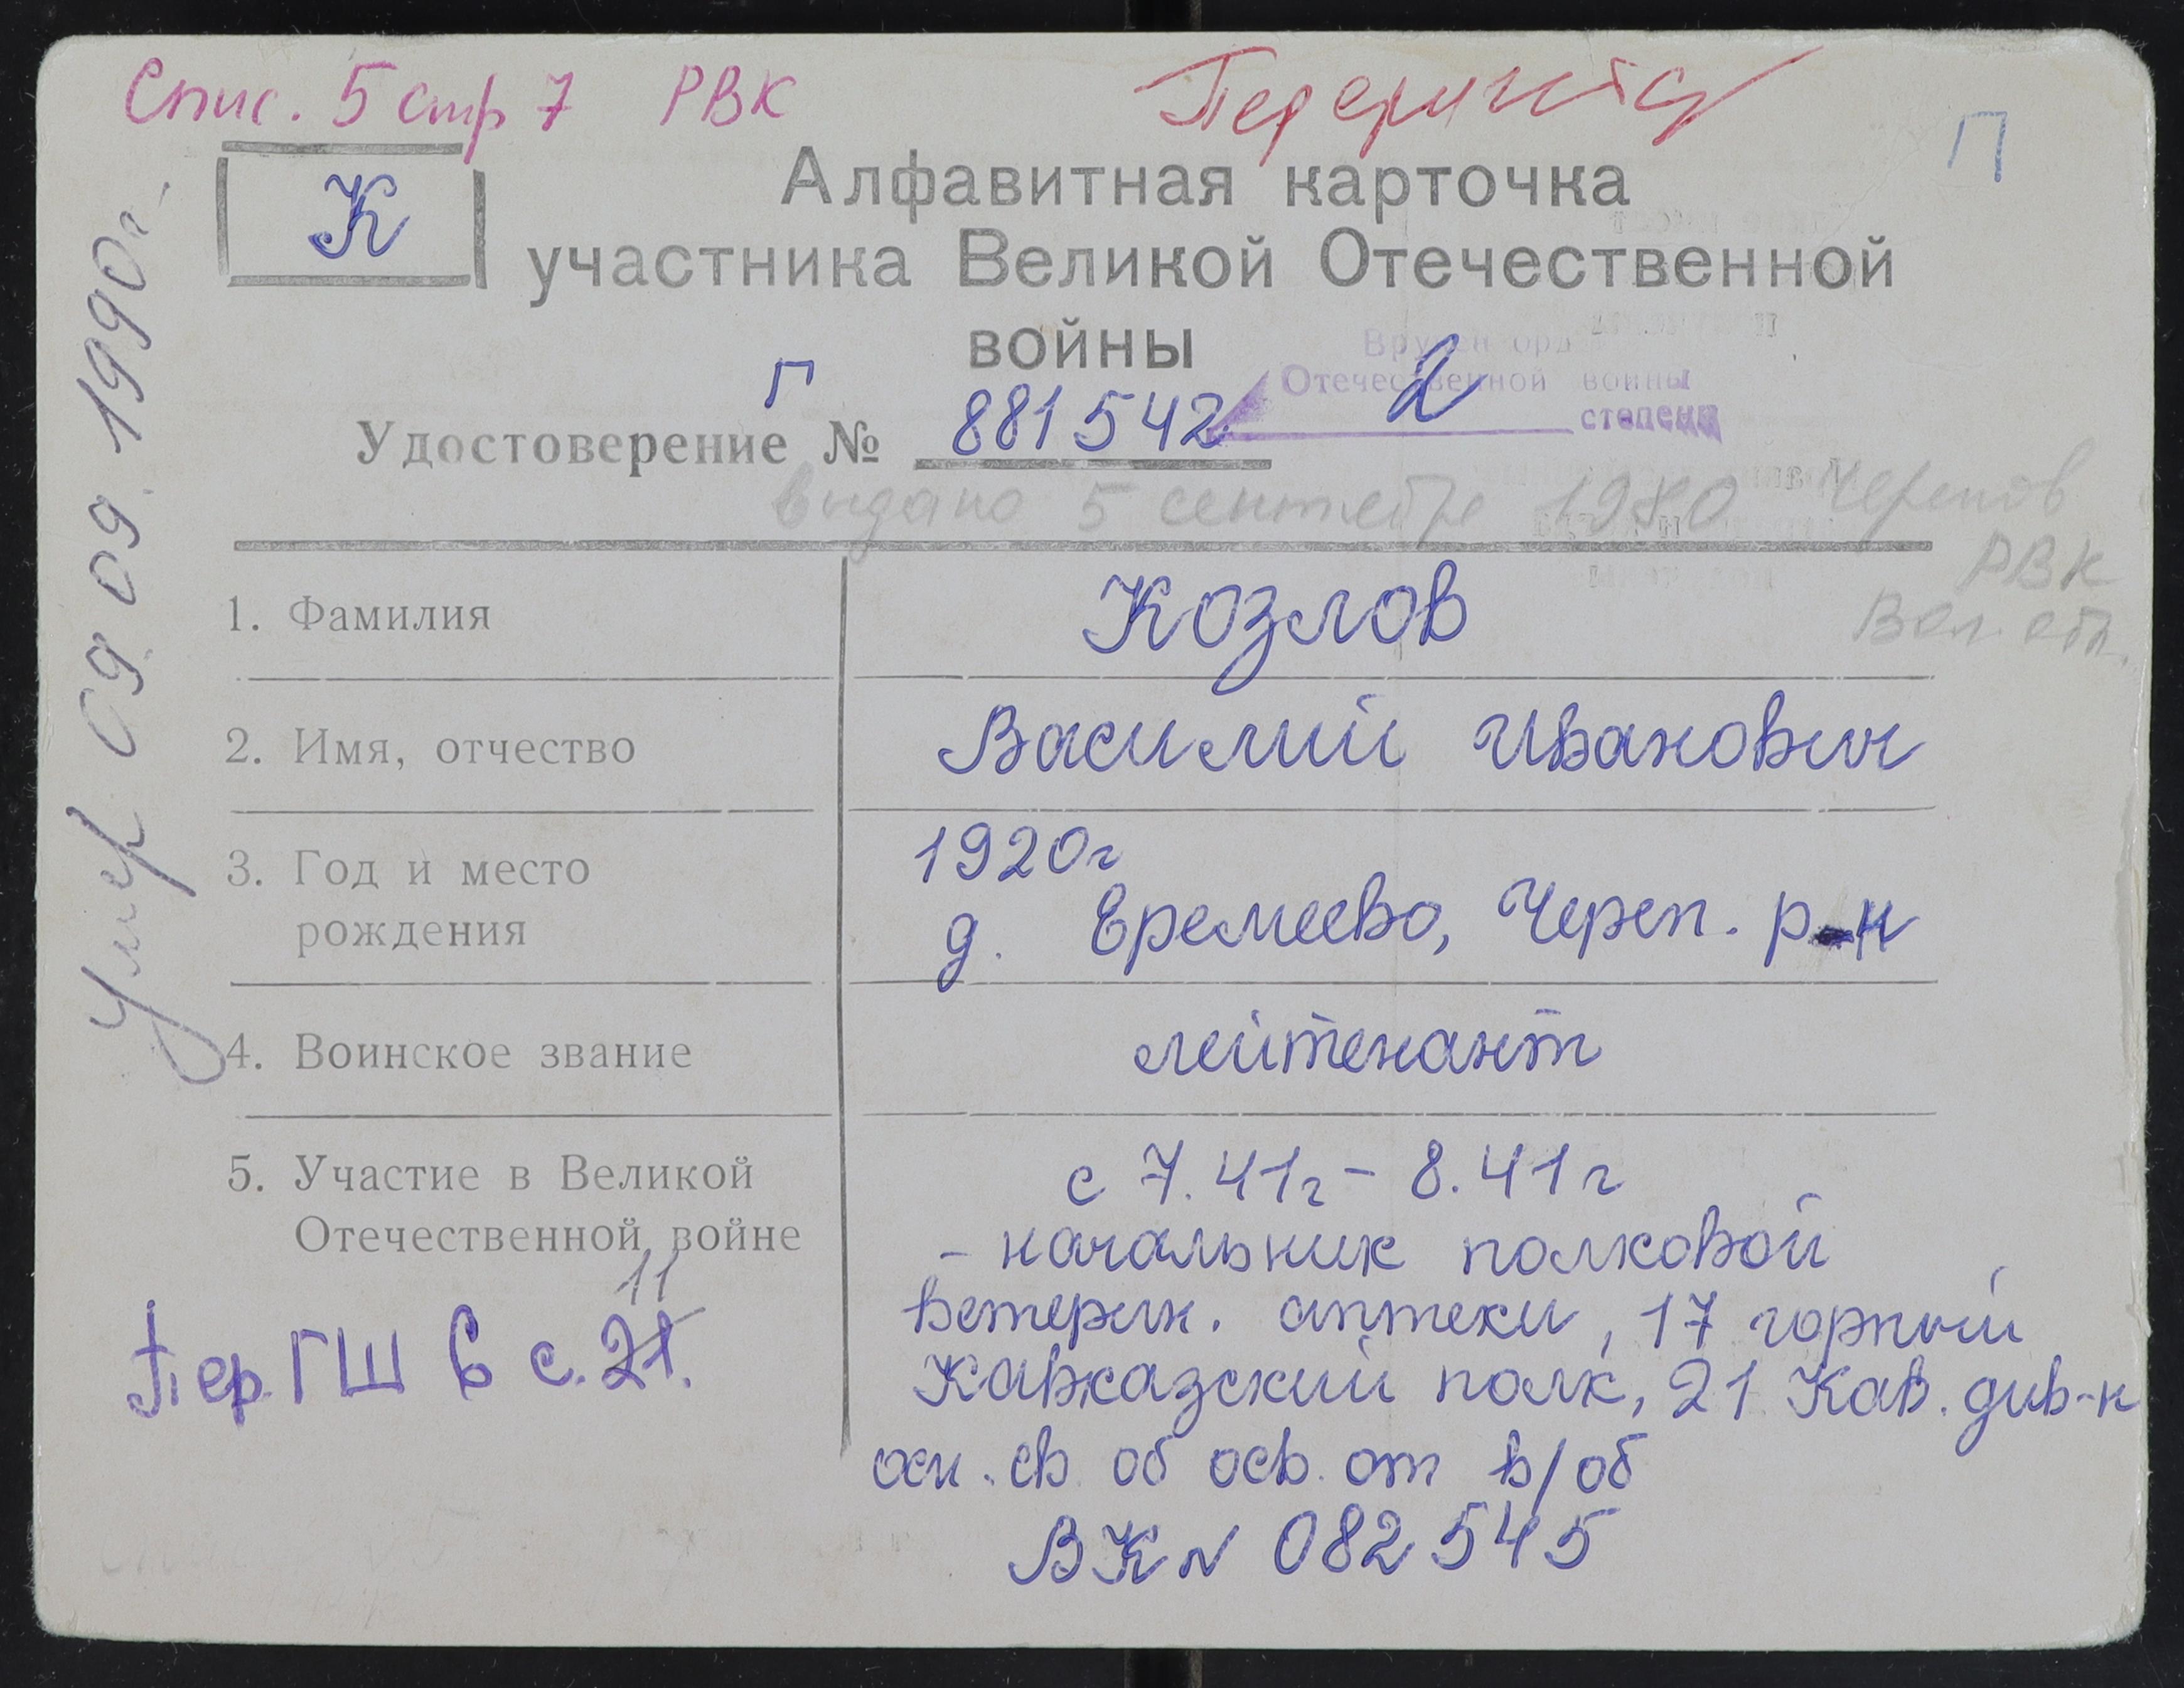 Спис. 5 стр 7 РВК
П
К
Алфавитная карточка
участника Великой Отечественной
войны
Вручен орд
Отечественной войны
2 степени
Г
Удостоверение № 881542
выдано 5 сентября 1980 Черепов
РВК
Вол. обл.
1. Фамилия Козлов
2. Имя, отчество Василий Иванович
3. Год и место 1920г
рождения д. Еремеево, Череп. р-н
4. Воинское звание лейтенант
5. Участие в Великой с 7.41г - 8.41г
Отечественной войне - начальник полковой
ветерин. аптеки, 17 горный
Кавказский полк, 21 Кав. див-н
осн. св. об осв. от в/об
ВК № 082545
11
Пер. ГШ 6 с. 21.
Умер 09.09.1990г.